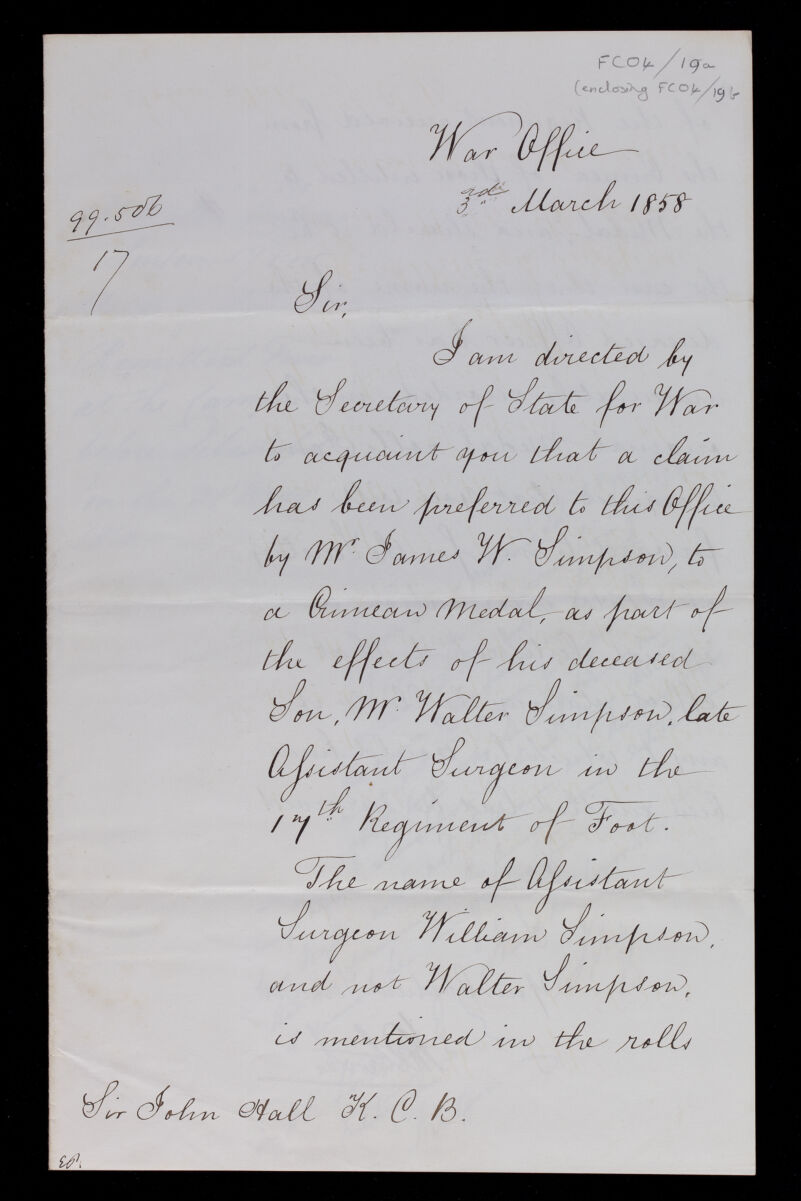 FCO4/19a
(enclosing FCO4/19b
War Office
3rd March 1858
99.506
17
Sir,
I am directed by
the Secretary of State for War
to acquaint you that a claim
has been preferred to this Office
by Mr. James W. Simpson, to
a Crimean Medal, as part of
the effects of his deceased
Son, Mr. Walter Simpson, late
Assistant Surgeon in the
17th Regiment of Foot.
The name of Assistant
Surgeon William Simpson,
and not Walter Simpson,
is mentioned in the rolls
Sir John Hall K. C. B.